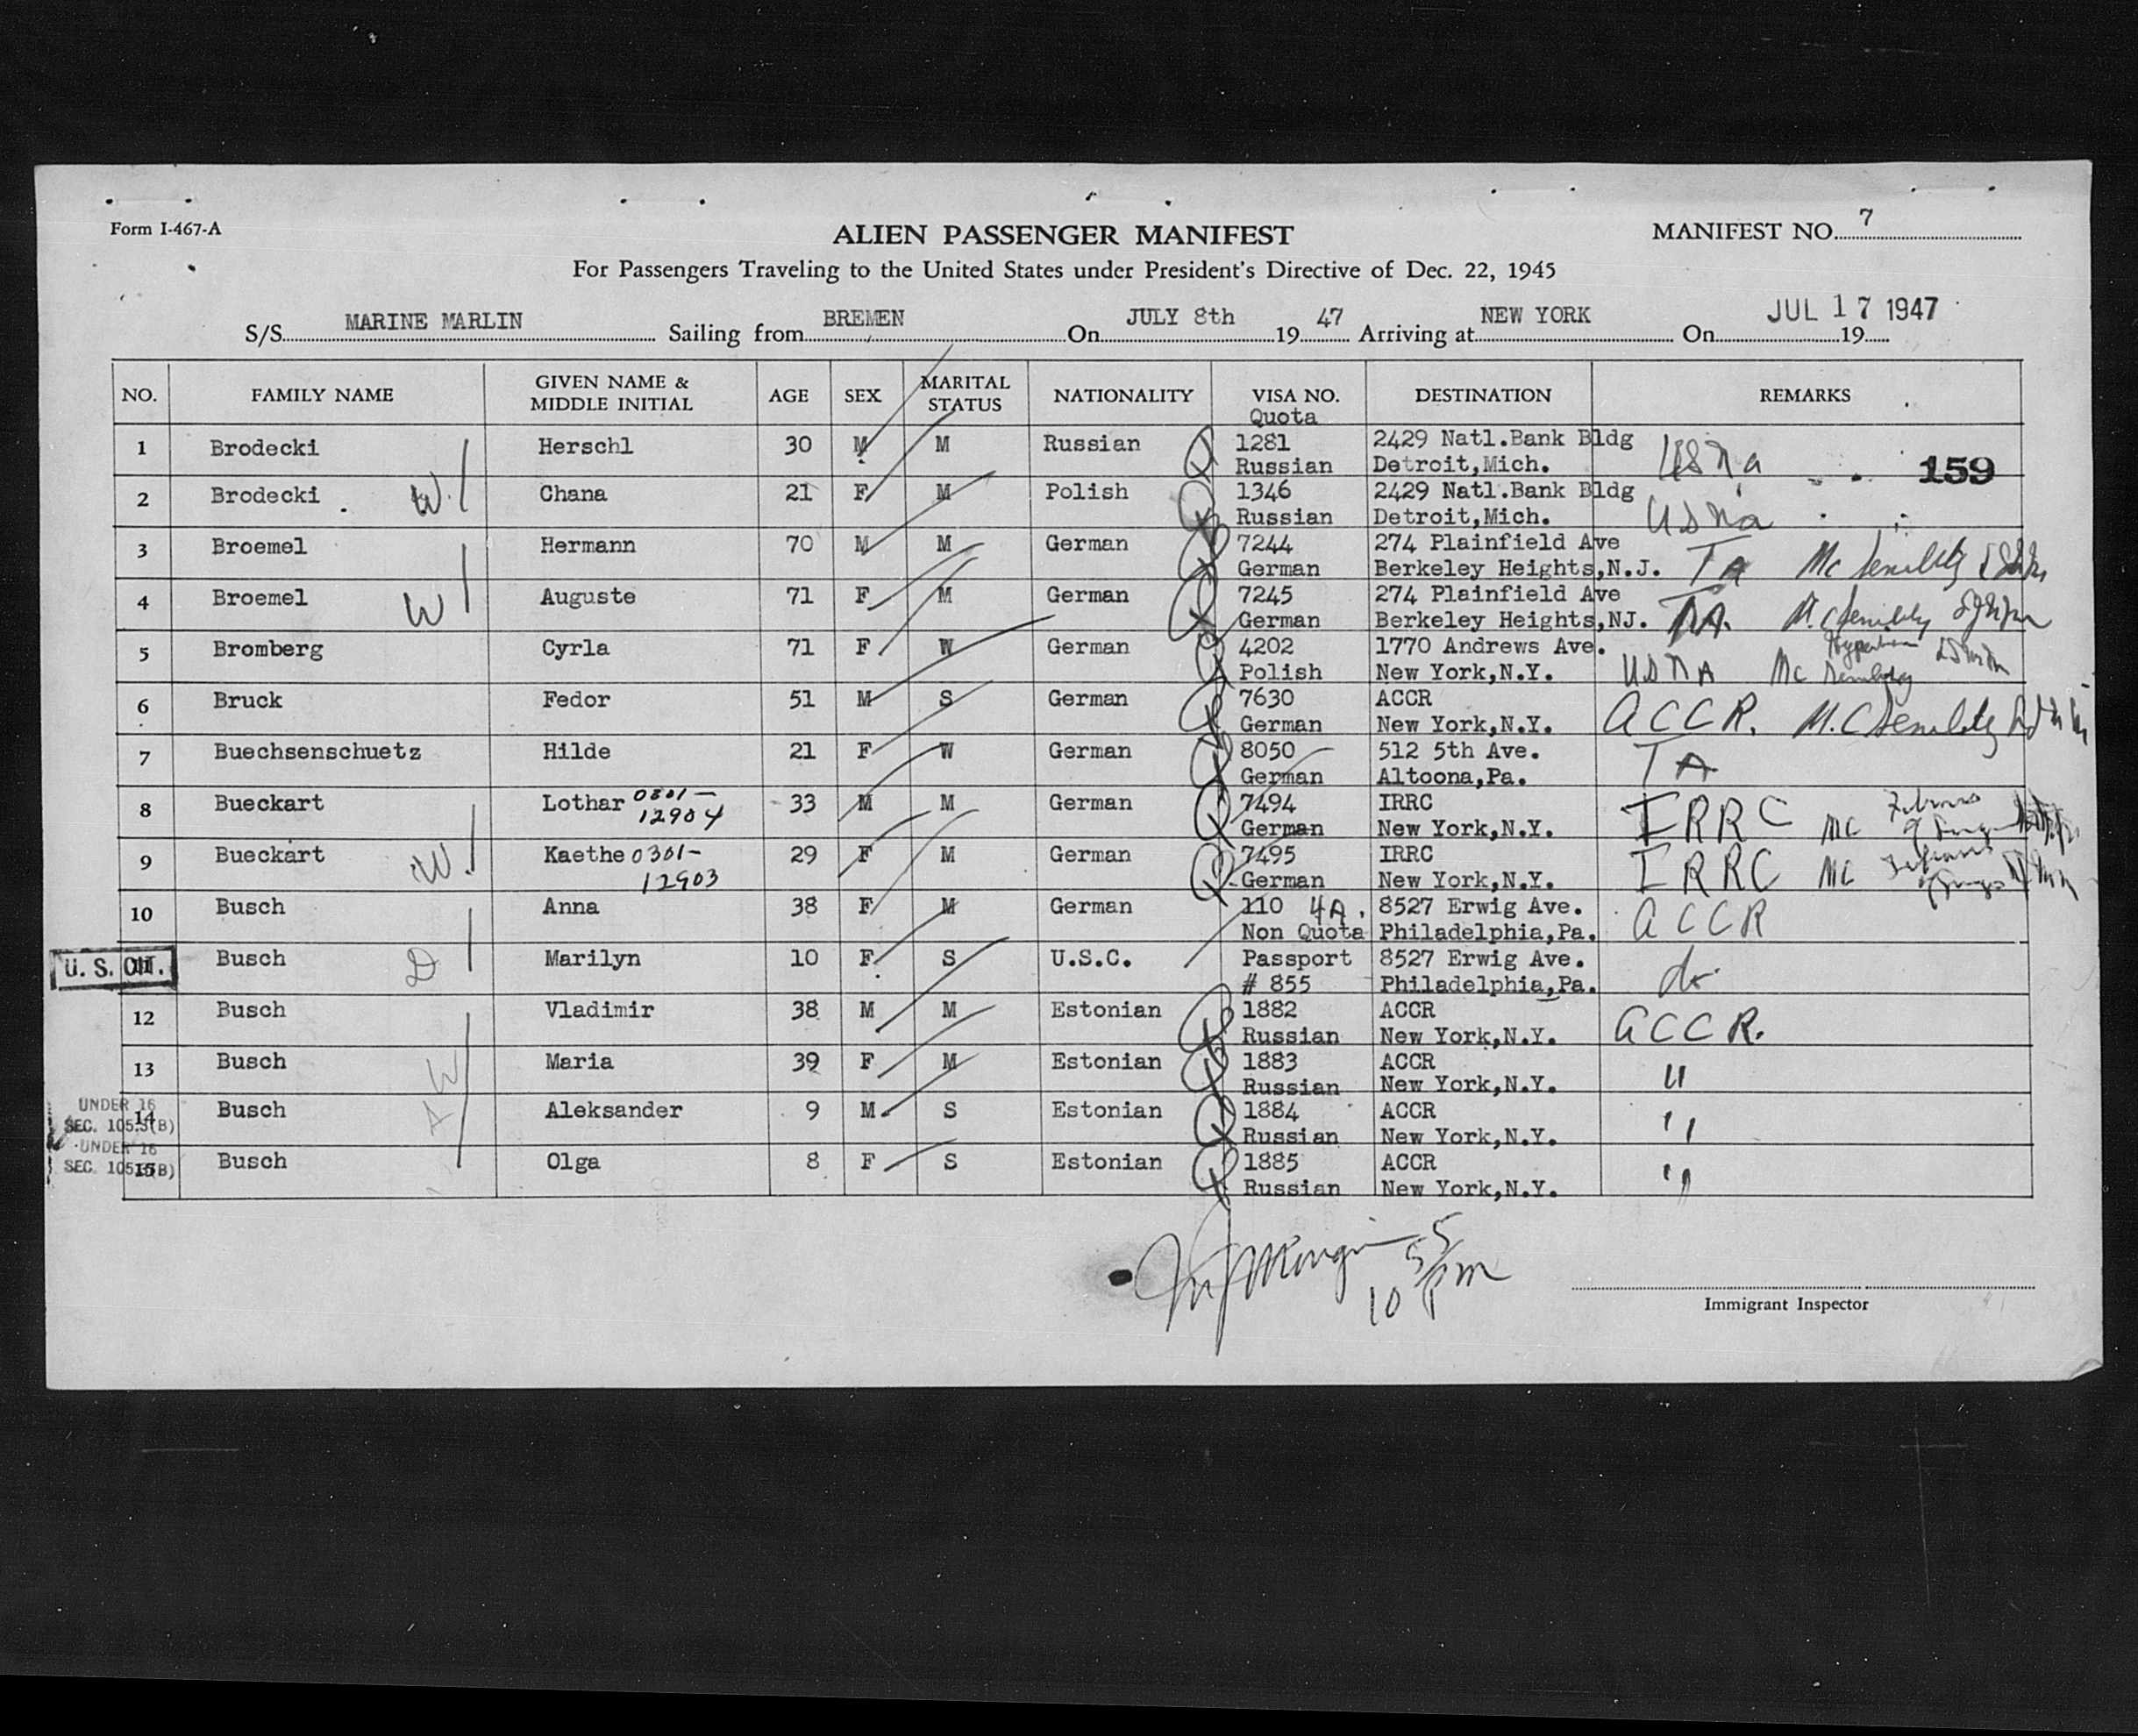 Form I-467-A
ALIEN PASSENGER MANIFEST
MANIFEST NO. 7
For Passengers Traveling to the United States under President's Directive of Dec. 22, 1945
S/S MARINE MARLIN Sailing from BREMEN On JULY 8th 19 47 Arriving at NEW YORK On JUL 17 1947 19
NO. FAMILY NAME GIVEN NAME & MIDDLE INITIAL AGE SEX MARITAL STATUS NATIONALITY VISA NO. DESTINATION REMARKS
Quota
1 Brodecki Herschl 30 M M Russian 1281 2429 Natl.Bank Bldg USNA
Russian Detroit,Mich. 159
2 Brodecki W. Chana 21 F M Polish 1346 2429 Natl.Bank Bldg
Russian Detroit,Mich. USNA
3 Broemel Hermann 70 M M German 7244 274 Plainfield Ave
German Berkeley Heights,N.J. TA MC Senility
4 Broemel W Auguste 71 F M German 7245 274 Plainfield Ave
German Berkeley Heights,NJ. TA. M.C Senility
5 Bromberg Cyrla 71 F W German 4202 1770 Andrews Ave.
Polish New York,N.Y. USNA MC Senility
6 Bruck Fedor 51 M S German 7630 ACCR
German New York,N.Y. ACCR. M.C Senility
7 Buechsenschuetz Hilde 21 F W German 8050 512 5th Ave.
German Altoona,Pa. TA
8 Bueckart Lothar 0301- 33 M M German 7494 IRRC
12904 German New York,N.Y. IRRC MC
9 Bueckart W. Kaethe 0301- 29 F M German 7495 IRRC
12903 German New York,N.Y. IRRC MC
10 Busch Anna 38 F M German 110 4A. 8527 Erwig Ave.
Non Quota Philadelphia,Pa. ACCR
U. S. CIT. 11 Busch D Marilyn 10 F S U.S.C. Passport 8527 Erwig Ave.
# 855 Philadelphia,Pa. do
12 Busch Vladimir 38 M M Estonian 1882 ACCR
Russian New York,N.Y. ACCR.
13 Busch W Maria 39 F M Estonian 1883 ACCR
Russian New York,N.Y. "
UNDER 16
SEC. 105.3(B)
14 Busch A Aleksander 9 M S Estonian 1884 ACCR
Russian New York,N.Y. "
UNDER 16
SEC. 105.3(B)
15 Busch Olga 8 F S Estonian 1885 ACCR
Russian New York,N.Y. "
10 55 PM
Immigrant Inspector